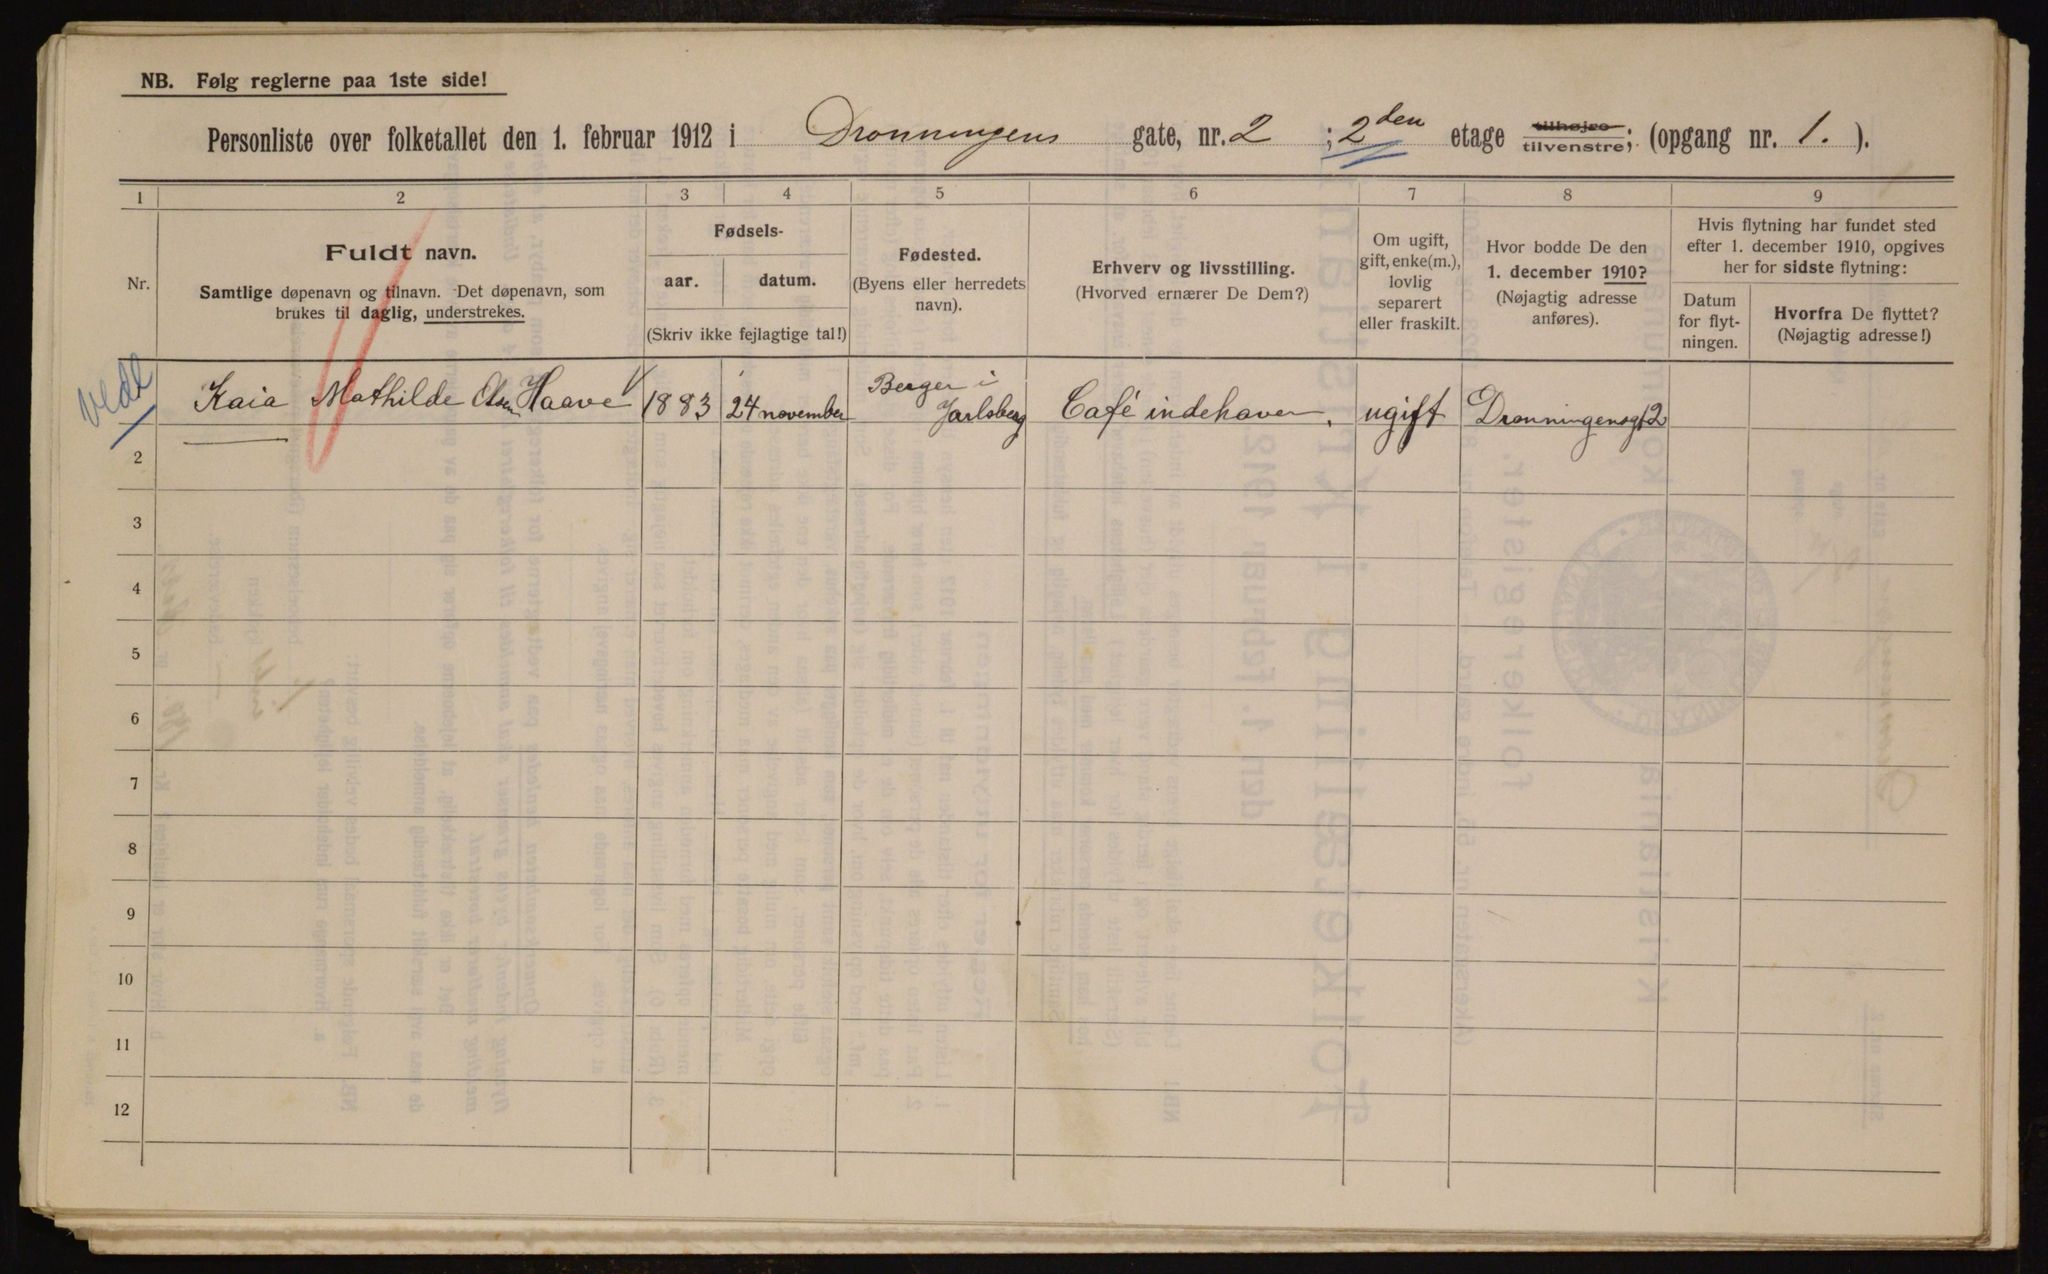 NB. Følg reglerne paa 1ste side!
Personliste over folketallet den 1. februar 1912 i Dronningens gate, nr. 2 ; 2den etage tilhøjre tilvenstre; (opgang nr. 1. ).
1 2 3 4 5 6 7 8 9
Nr.
Fuldt navn.
Samtlige døpenavn og tilnavn. Det døpenavn, som
brukes til daglig, understrekes.
Fødsels-
aar. datum.
(Skriv ikke fejlagtige tal!)
Fødested.
(Byens eller herredets
navn).
Erhverv og livsstilling.
(Hvorved ernærer De Dem?)
Om ugift,
gift, enke(m.),
lovlig
separert
eller fraskilt.
Hvor bodde De den
1. december 1910?
(Nøjagtig adresse
anføres).
Hvis flytning har fundet sted
efter 1. december 1910, opgives
her for sidste flytning:
Datum
for flyt-
ningen.
Hvorfra De flyttet?
(Nøjagtig adresse!)
Kaia Mathilde Olsen Haave 1883 24 november Berger i Jarlsberg Café indehaver. ugift Dronningensgt 2
2
3
4
5
6
7
8
9
10
11
12